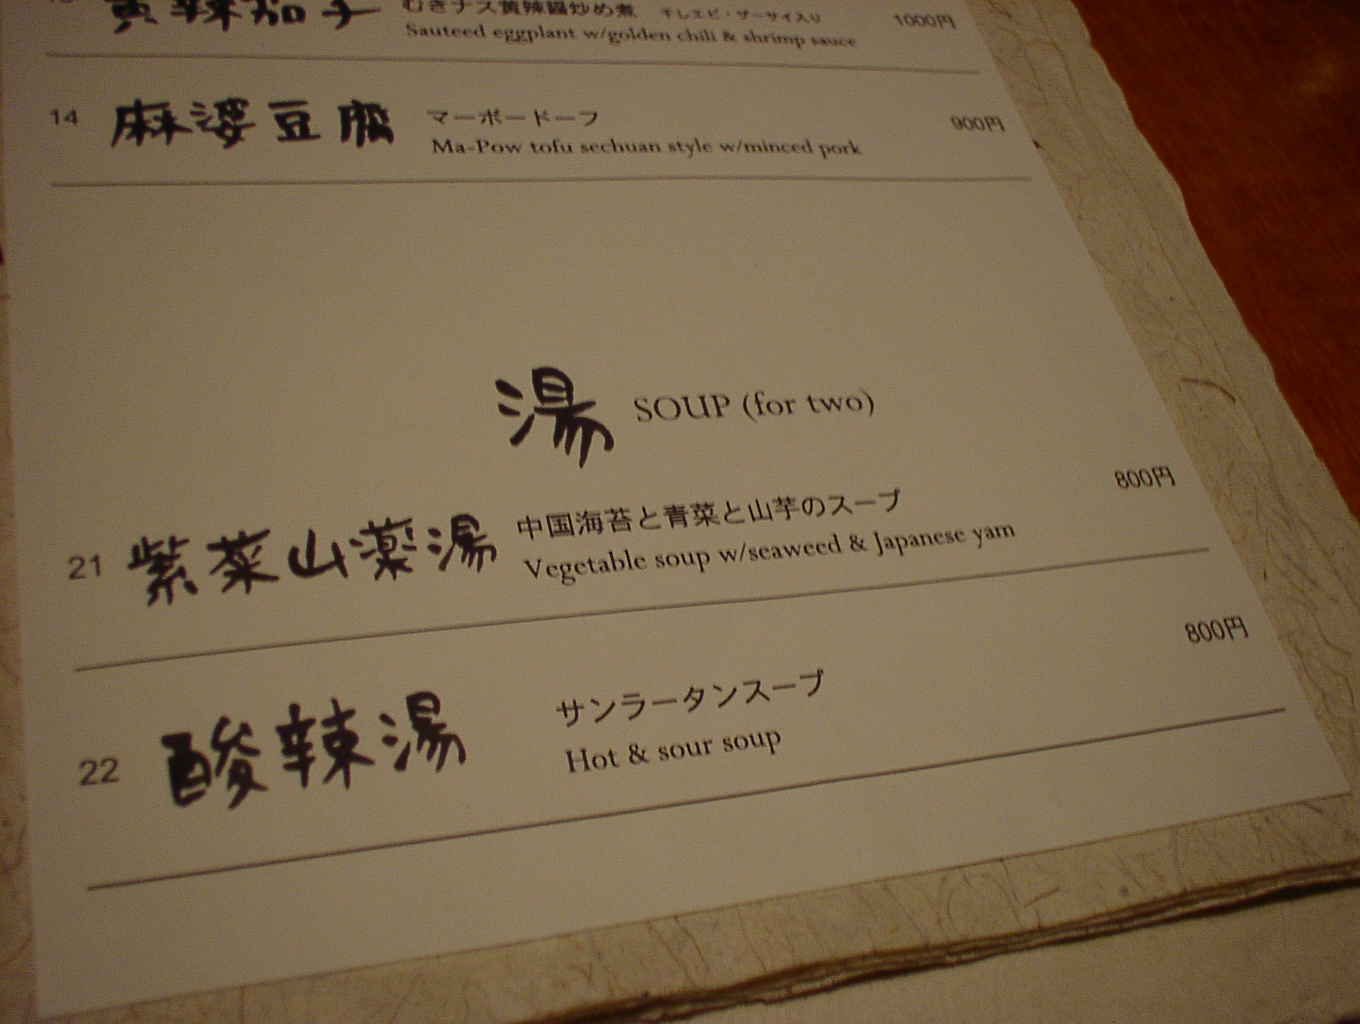 黄辣茄子 むきナス黄辣醤炒め煮 干しエビ・ザーサイ入り 1000円
Sauteed eggplant w/golden chili & shrimp sauce
14 麻婆豆腐 マーボードーフ 900円
Ma-Pow tofu sechuan style w/minced pork
湯 SOUP (for two)
800円
21 紫菜山薬湯 中国海苔と青菜と山芋のスープ
Vegetable soup w/seaweed & Japanese yam
800円
22 酸辣湯 サンラータンスープ
Hot & sour soup